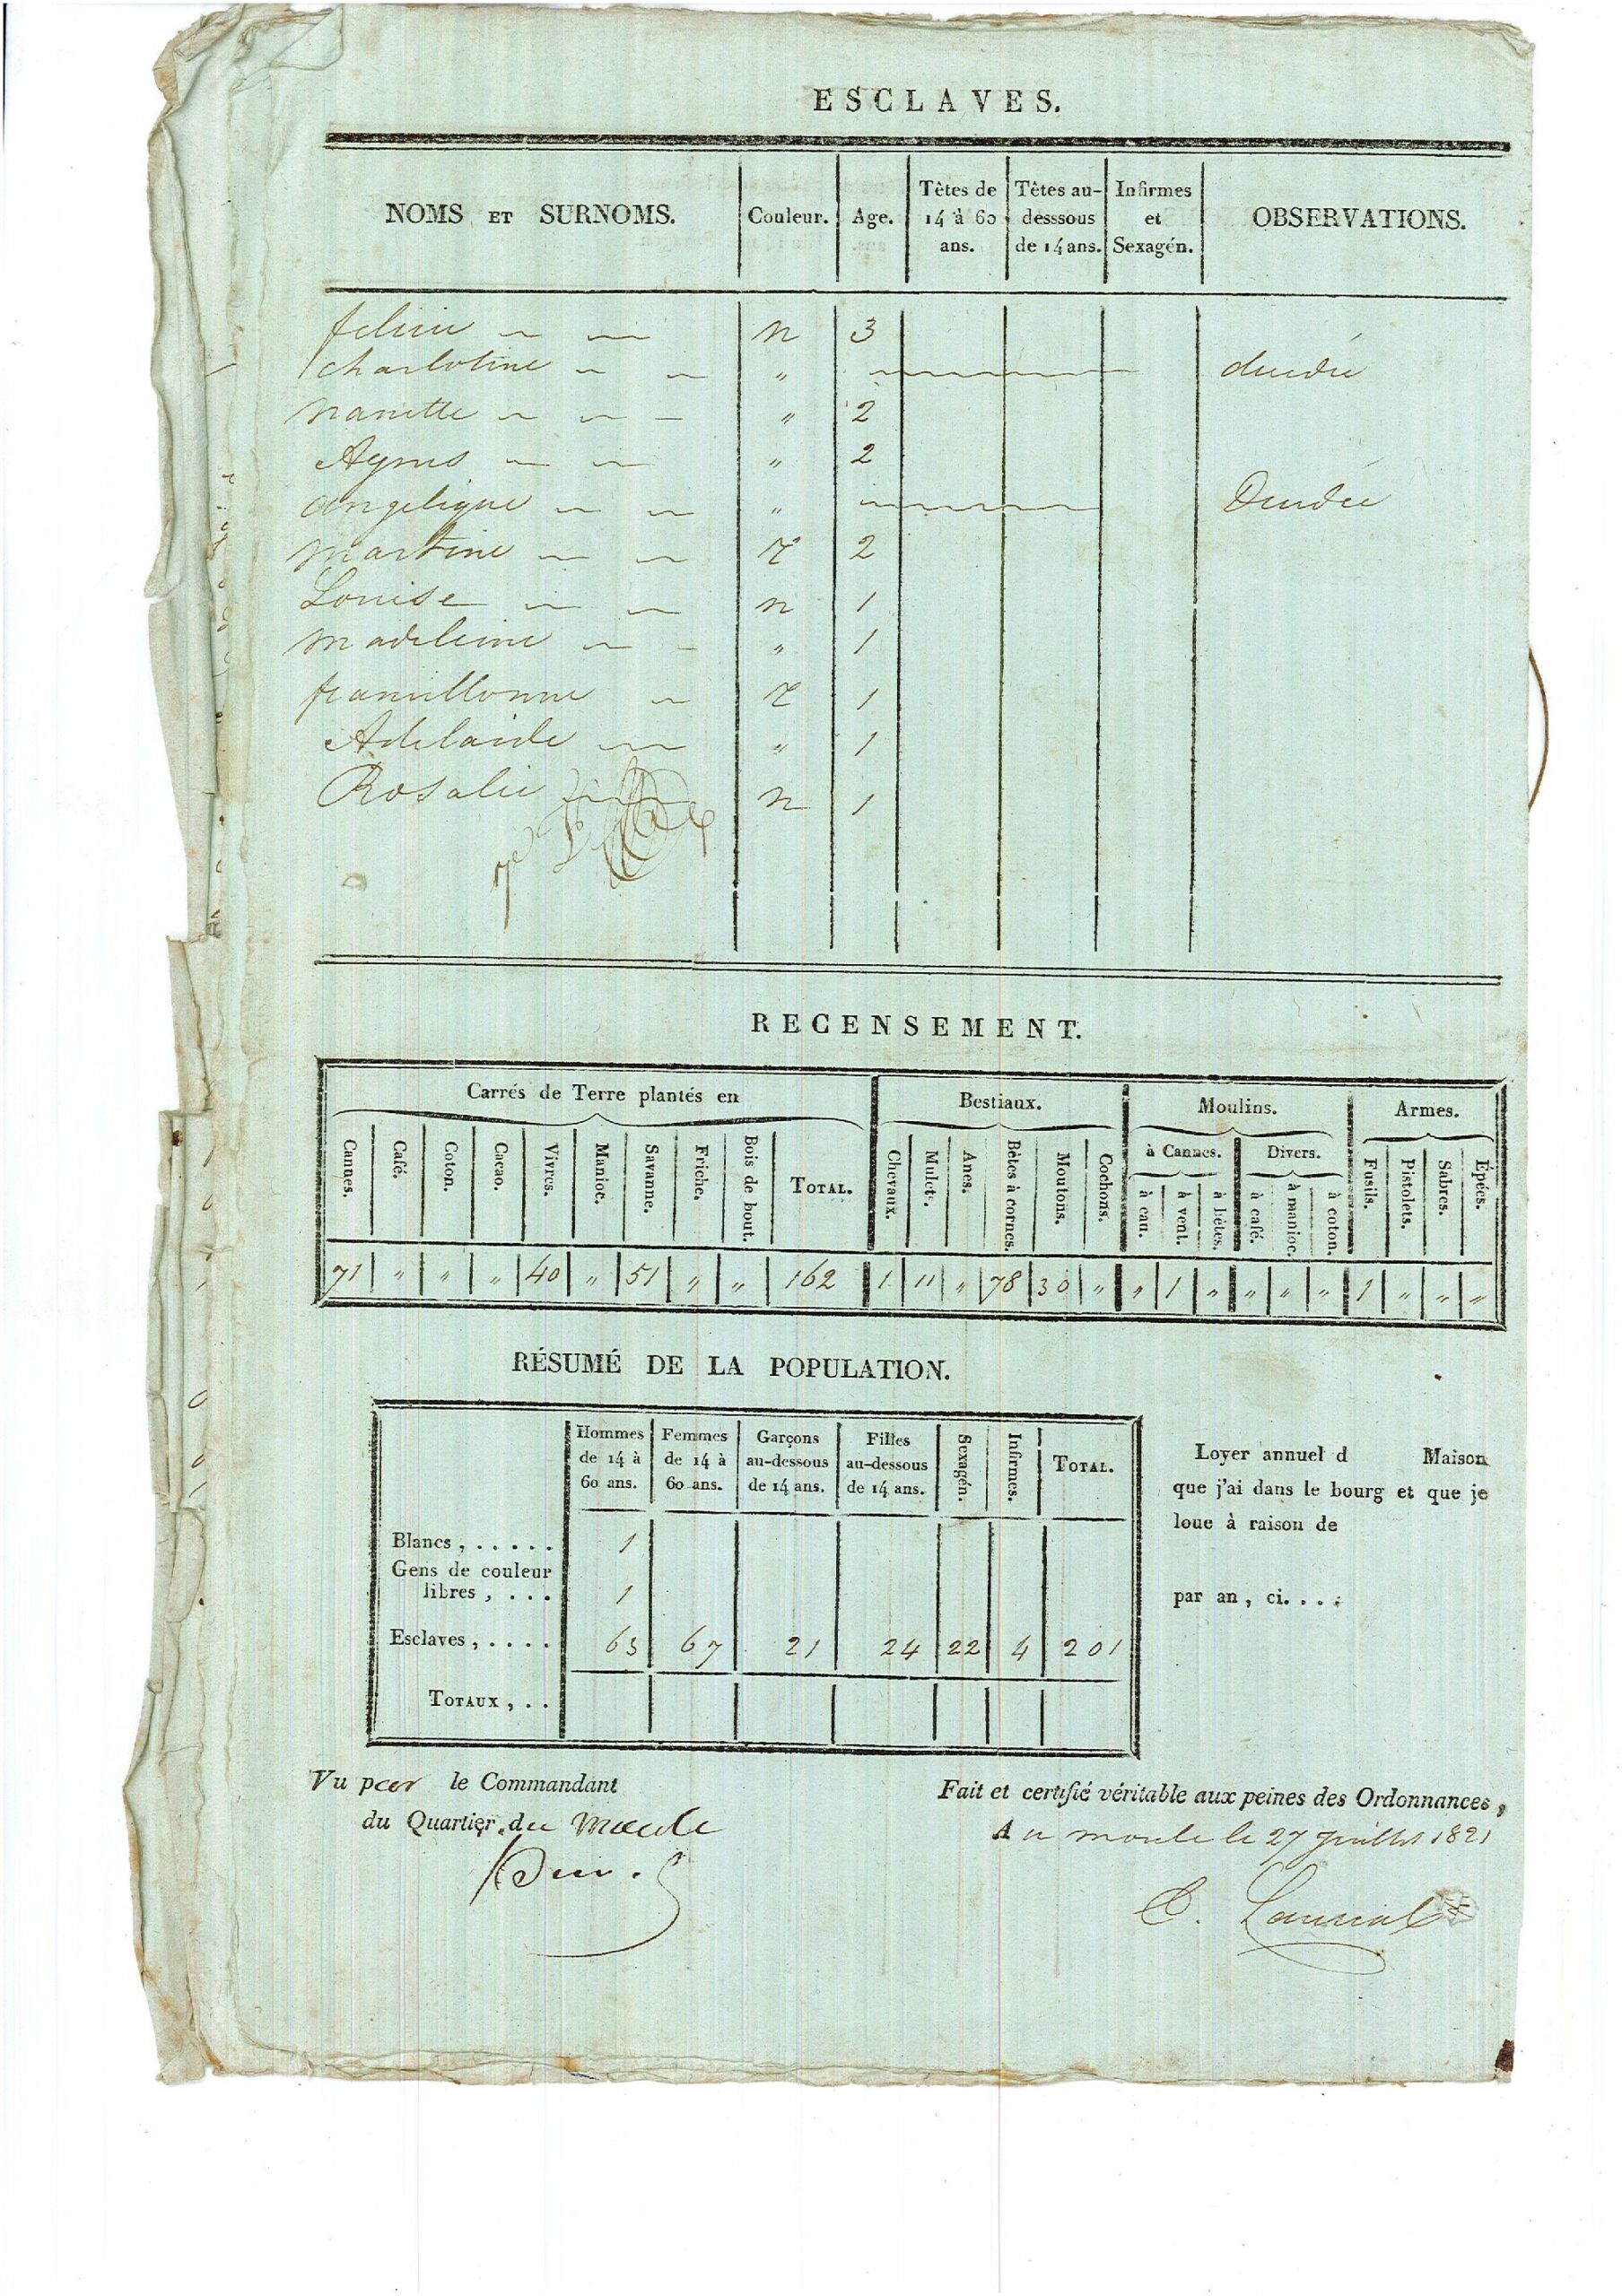 ESCLAVES.
NOMS ET SURNOMS. Couleur. Age. Têtes de 14 à 60 ans. Têtes au-desssous de 14 ans. Infirmes et Sexagén. OBSERVATIONS.
n 3
charlotine " 
nanette " 2
Agnes " 2
angelique "
martine 2
Louise n 1
madeleine " 1
1
Adelaide " 1
Rosalie n 1
RECENSEMENT.
Carrés de Terre plantés en Bestiaux. Moulins. Armes.
à Cannes. Divers.
Cannes. Café. Coton. Cacao. Vivres. Manioc. Savanne. Friche. Bois de bout. TOTAL. Chevaux. Mulets. Anes. Bêtes à cornes. Moutons. Cochons. à eau. à vent. à bêtes. à café. à manioc. à coton. Fusils. Pistolets. Sabres. Épées.
71 " " " 40 " 51 " " 162 1 11 " 78 30 " " 1 " " " " 1 " " "
RÉSUMÉ DE LA POPULATION.
Hommes de 14 à 60 ans. Femmes de 14 à 60 ans. Garçons au-dessous de 14 ans. Filles au-dessous de 14 ans. Sexagén. Infirmes. TOTAL.
Blancs , . . . . . 1
Gens de couleur
libres , . . . 1
Esclaves , . . . . 63 67 21 24 22 4 201
TOTAUX , . .
Loyer annuel d Maison
que j'ai dans le bourg et que je
loue à raison de
par an , ci. . . .
Vu par le Commandant
du Quartier du Moule
Fait et certifié véritable aux peines des Ordonnances,
Au moule le 27 juillet 1821